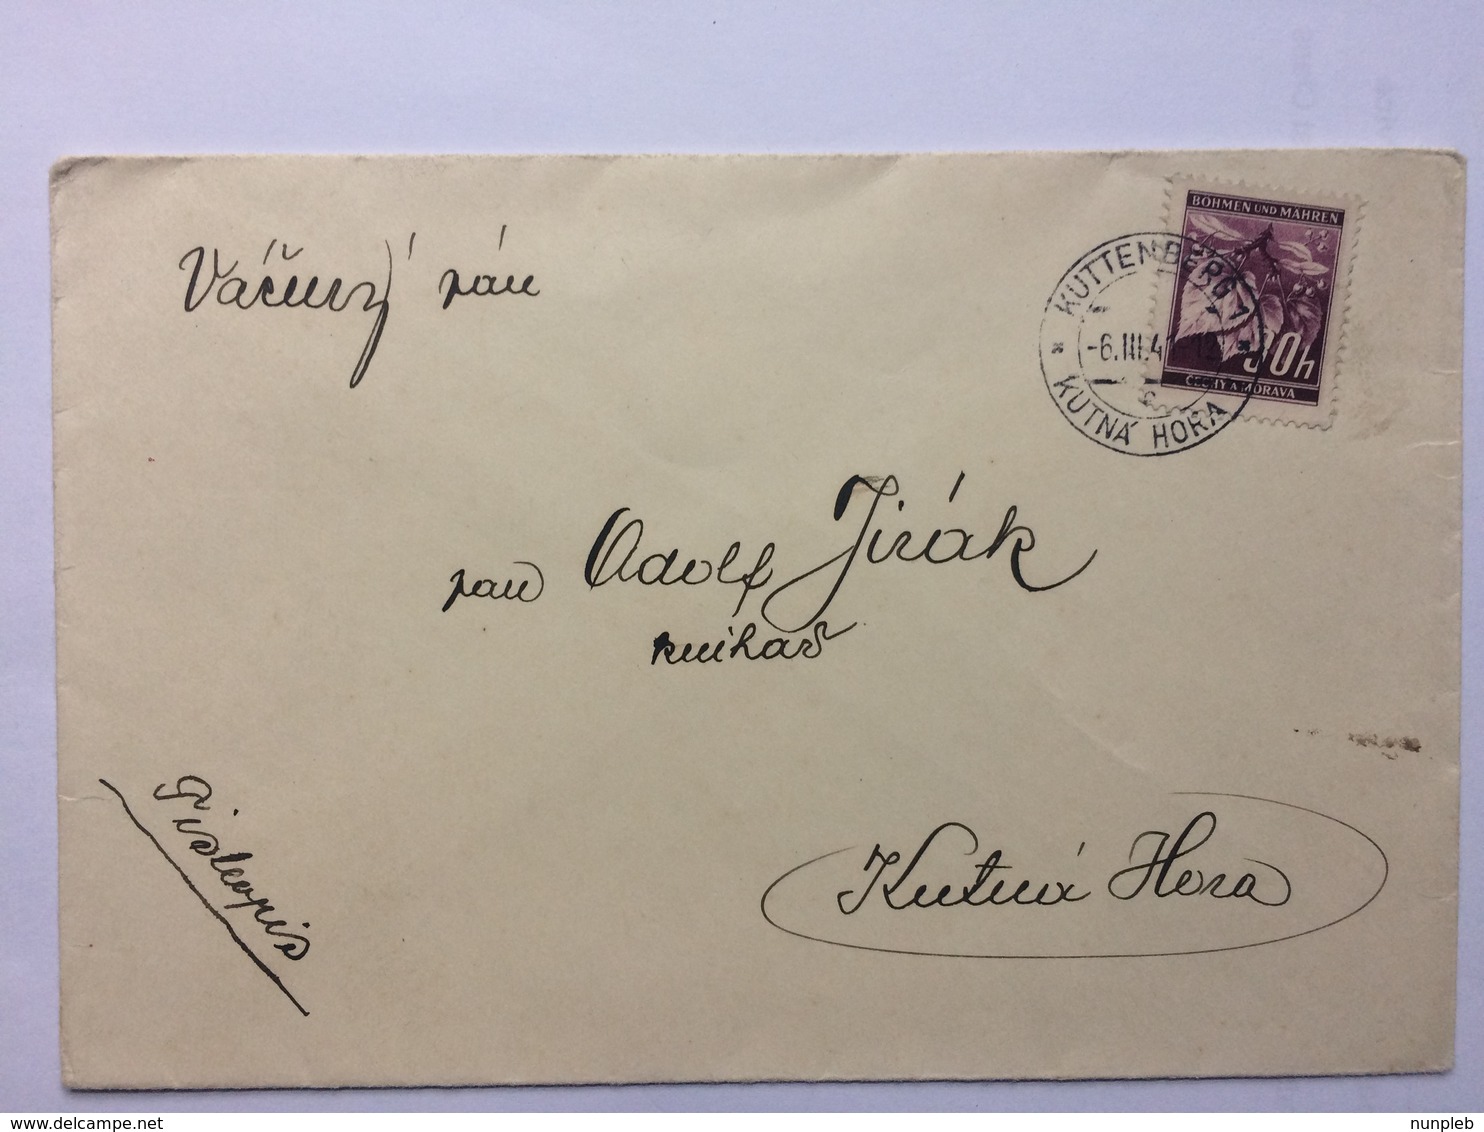 Vážený pán
BÖHMEN UND MÄHREN
30h
ČECHY A MORAVA
KUTTENBERG 1
-6.III.41-12
c
KUTNÁ HORA
pan Adolf Jirák
knihař
Tiskopis
Kutná Hora
delcampe.net
nunpleb